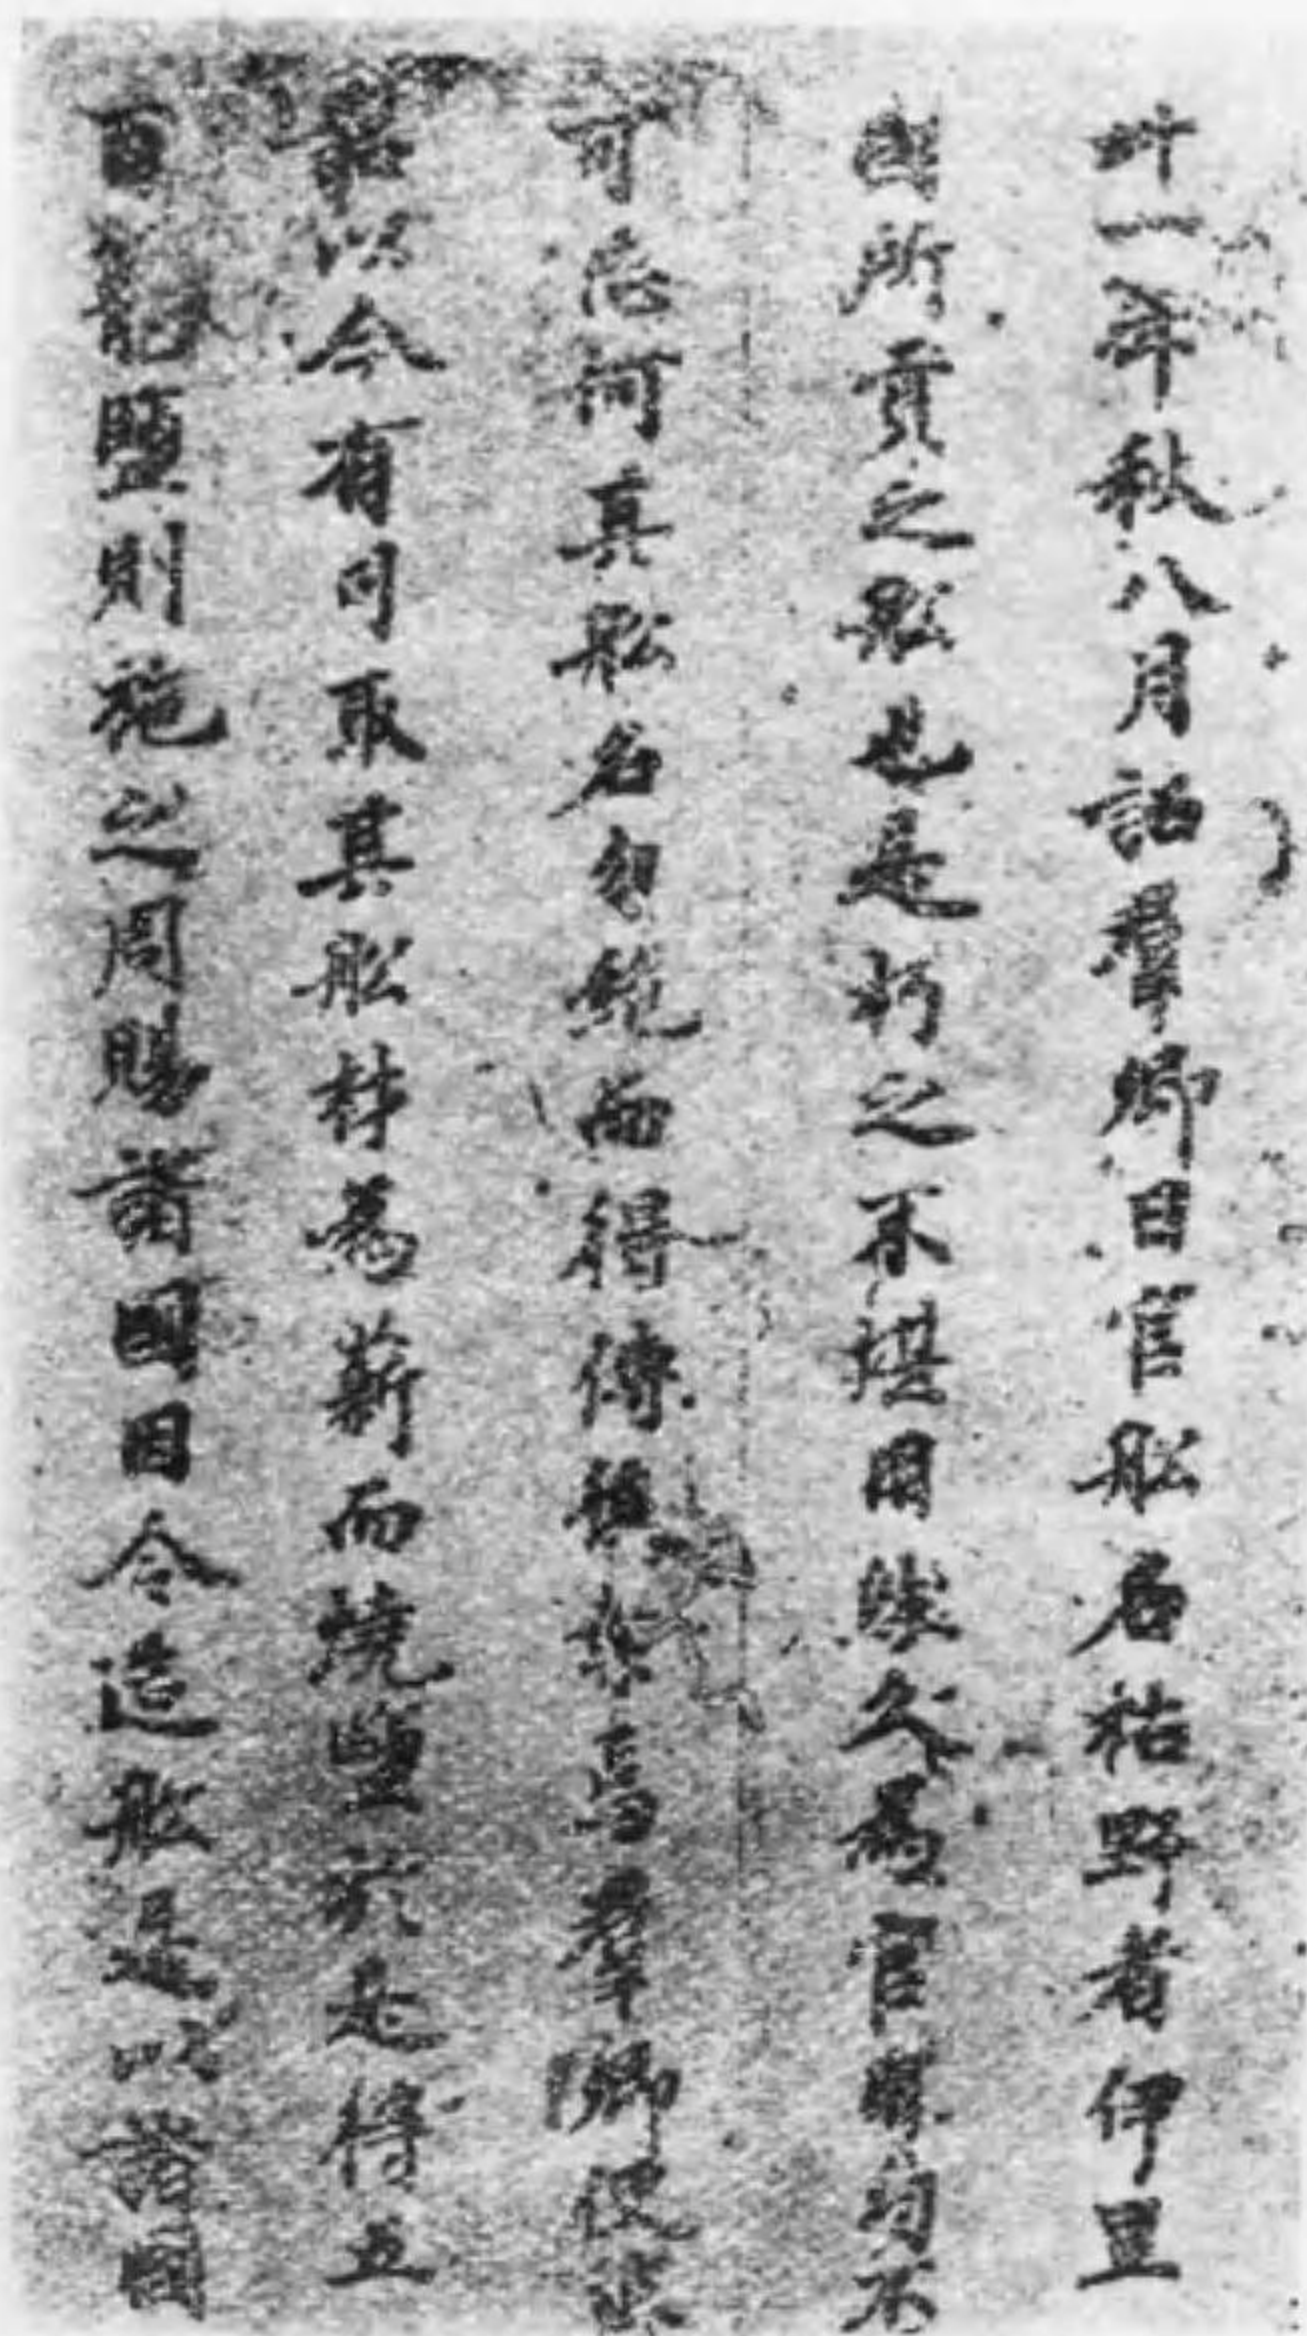 卅一年秋八月詔羣卿曰官舩名枯野者伊豆
國所貢之舩也是朽之不堪用然久爲官用功不
可忘何其舩名勿絶而得傳後葉焉羣卿便被
詔以令有司取其舩材爲薪而燒鹽於是得五
百籠鹽則施之周賜諸國因令造舩是以諸國